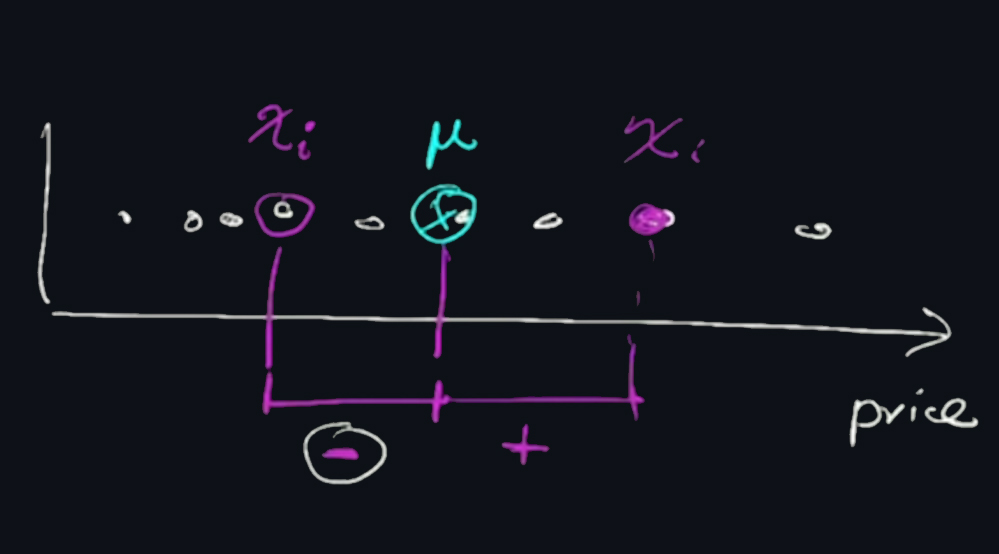 xᵢ μ xᵢ
price
- +